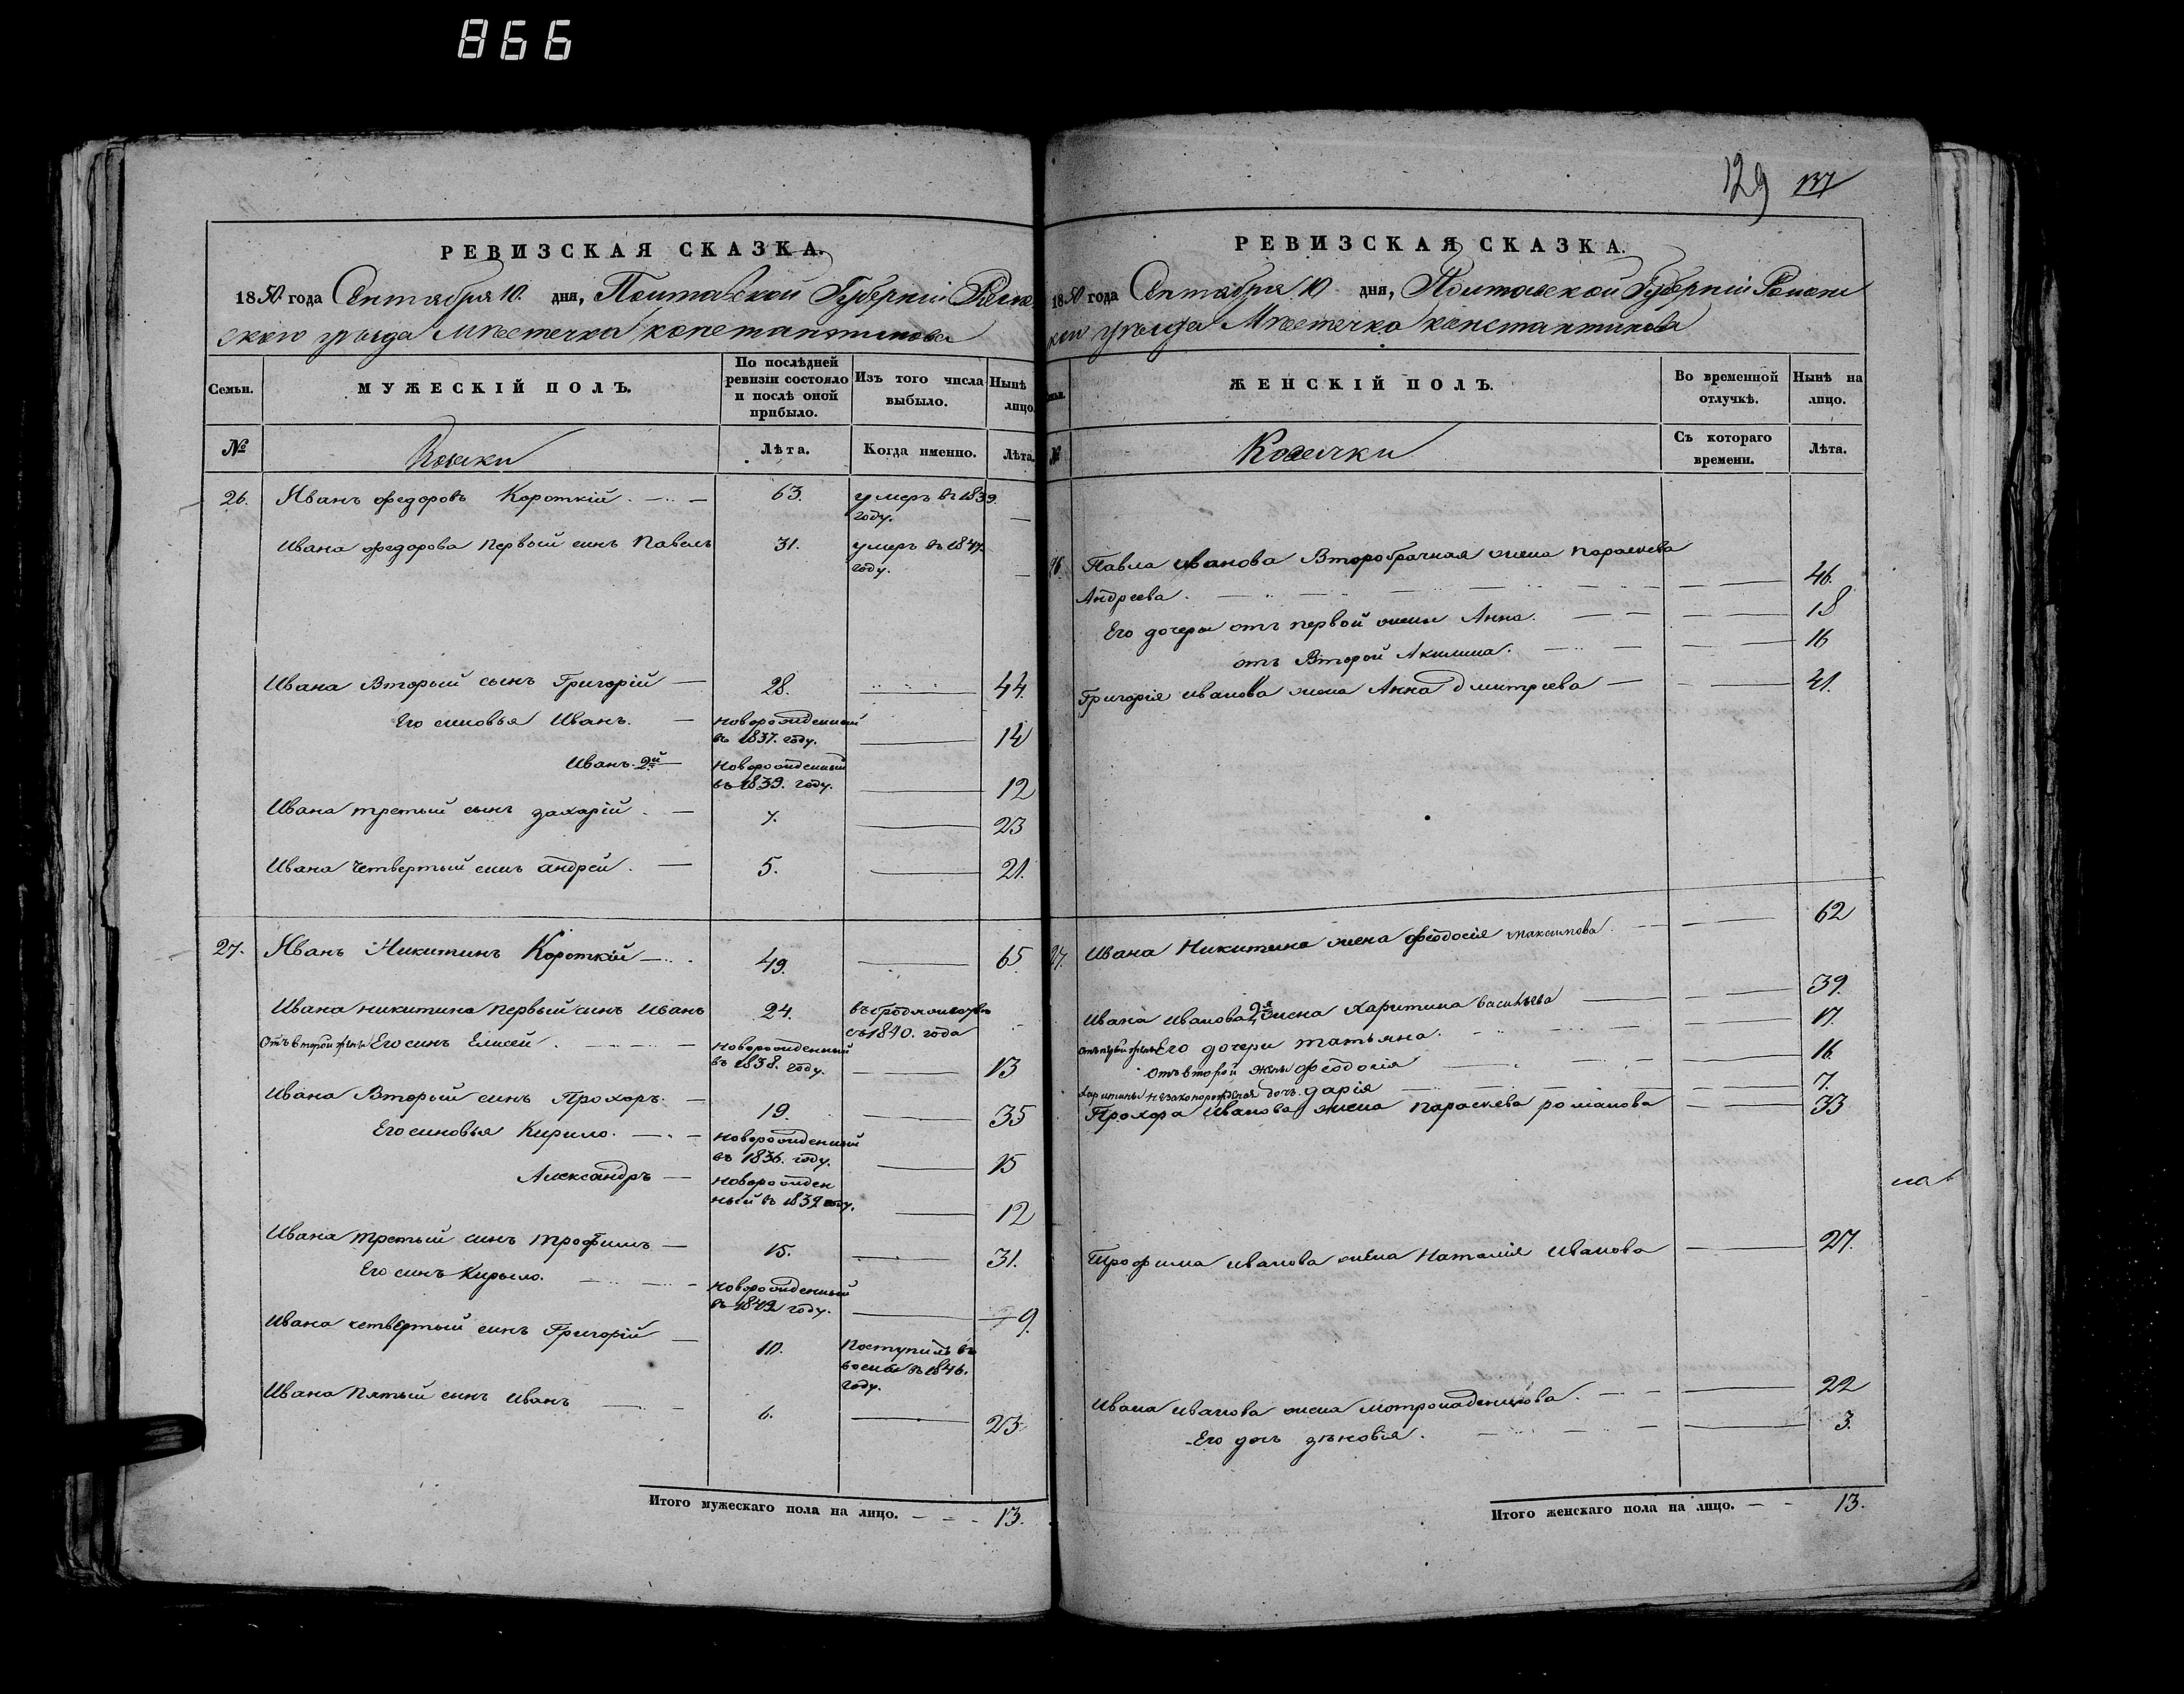 866
РЕВИЗСКАЯ СКАЗКА.
1850 года Сентября 10. дня, Полтавской Губерніи Ромен
ского уъзда Мъстечка константинова
Семьи.
МУЖЕСКІЙ ПОЛЪ.
По послѣдней ревизіи состояло и послѣ оной прибыло.
Изъ того числа выбыло.
Нынѣ лицо.
№
Козаки
Лѣта.
Когда именно.
Лѣта.
26. Иванъ федоровъ Короткій. 63. умеръ въ 1839.
году.
Ивана федорова первый синъ Павелъ 31. умеръ въ 1847.
году.
Ивана Вторый сынъ Григорій 28. 44.
Его синовья Иванъ. новорожденный
въ 1837. году. 14
Иванъ. 2й новорожденный
въ 1839. году. 12
Ивана третый сынъ захарій. 7. 23
Ивана четвертый синъ андрей. 5. 21.
27. Иванъ Никитинъ Короткій 49. 65.
Ивана никитина первый синъ Иванъ 24.
съ 1840. года
Отъ второй жены Его синъ Елисей. новорожденный
въ 1838. году. 13
Ивана Вторый синъ Прохоръ. 19. 35
Его синовья Кирило. новорожденный
въ 1836. году. 15
Александръ новорожден
ный въ 1839 году. 12
Ивана третый синъ трофимъ 15. 31.
Его синъ Кирыло. новорожденный
году. 9.
Ивана четвертый синъ Григорій 10. Поступилъ въ
въ 1846.
году.
Ивана Пятый синъ Иванъ 6. 23
Итого мужескаго пола на лицо. 13.
129 137
РЕВИЗСКАЯ СКАЗКА.
1850 года Сентября 10 дня, Полтавской Губерніи Роменс
кого уъзда Мъстечка константинова
ЖЕНСКІЙ ПОЛЪ.
Во временной отлучкѣ.
Нынѣ на лицо.
№
Козачки
Съ котораго времени.
Лѣта.
26. Павла иванова Второбрачная жена параскева
Андреева. 46.
Его дочеры отъ первой жены Анна. 18
отъ Второй Акилина. 16
Григорія иванова жена Анна дмитріева 41.
27. Ивана Никитина жена феодосія максимова. 62
Ивана иванова 2я жена Харитина васильева 39.
Отъ первой жены Его дочери татьяна. 17.
Отъ второй жены феодосія 16.
Харитины незаконорожденая дочь дарія 7.
Прохора иванова жена параскева романова 33
на
Трофима иванова жена Наталія Иванова 27.
Ивана иванова жена мотрона 22
Его дочь зѣновія. 3.
Итого женскаго пола на лицо. 13.